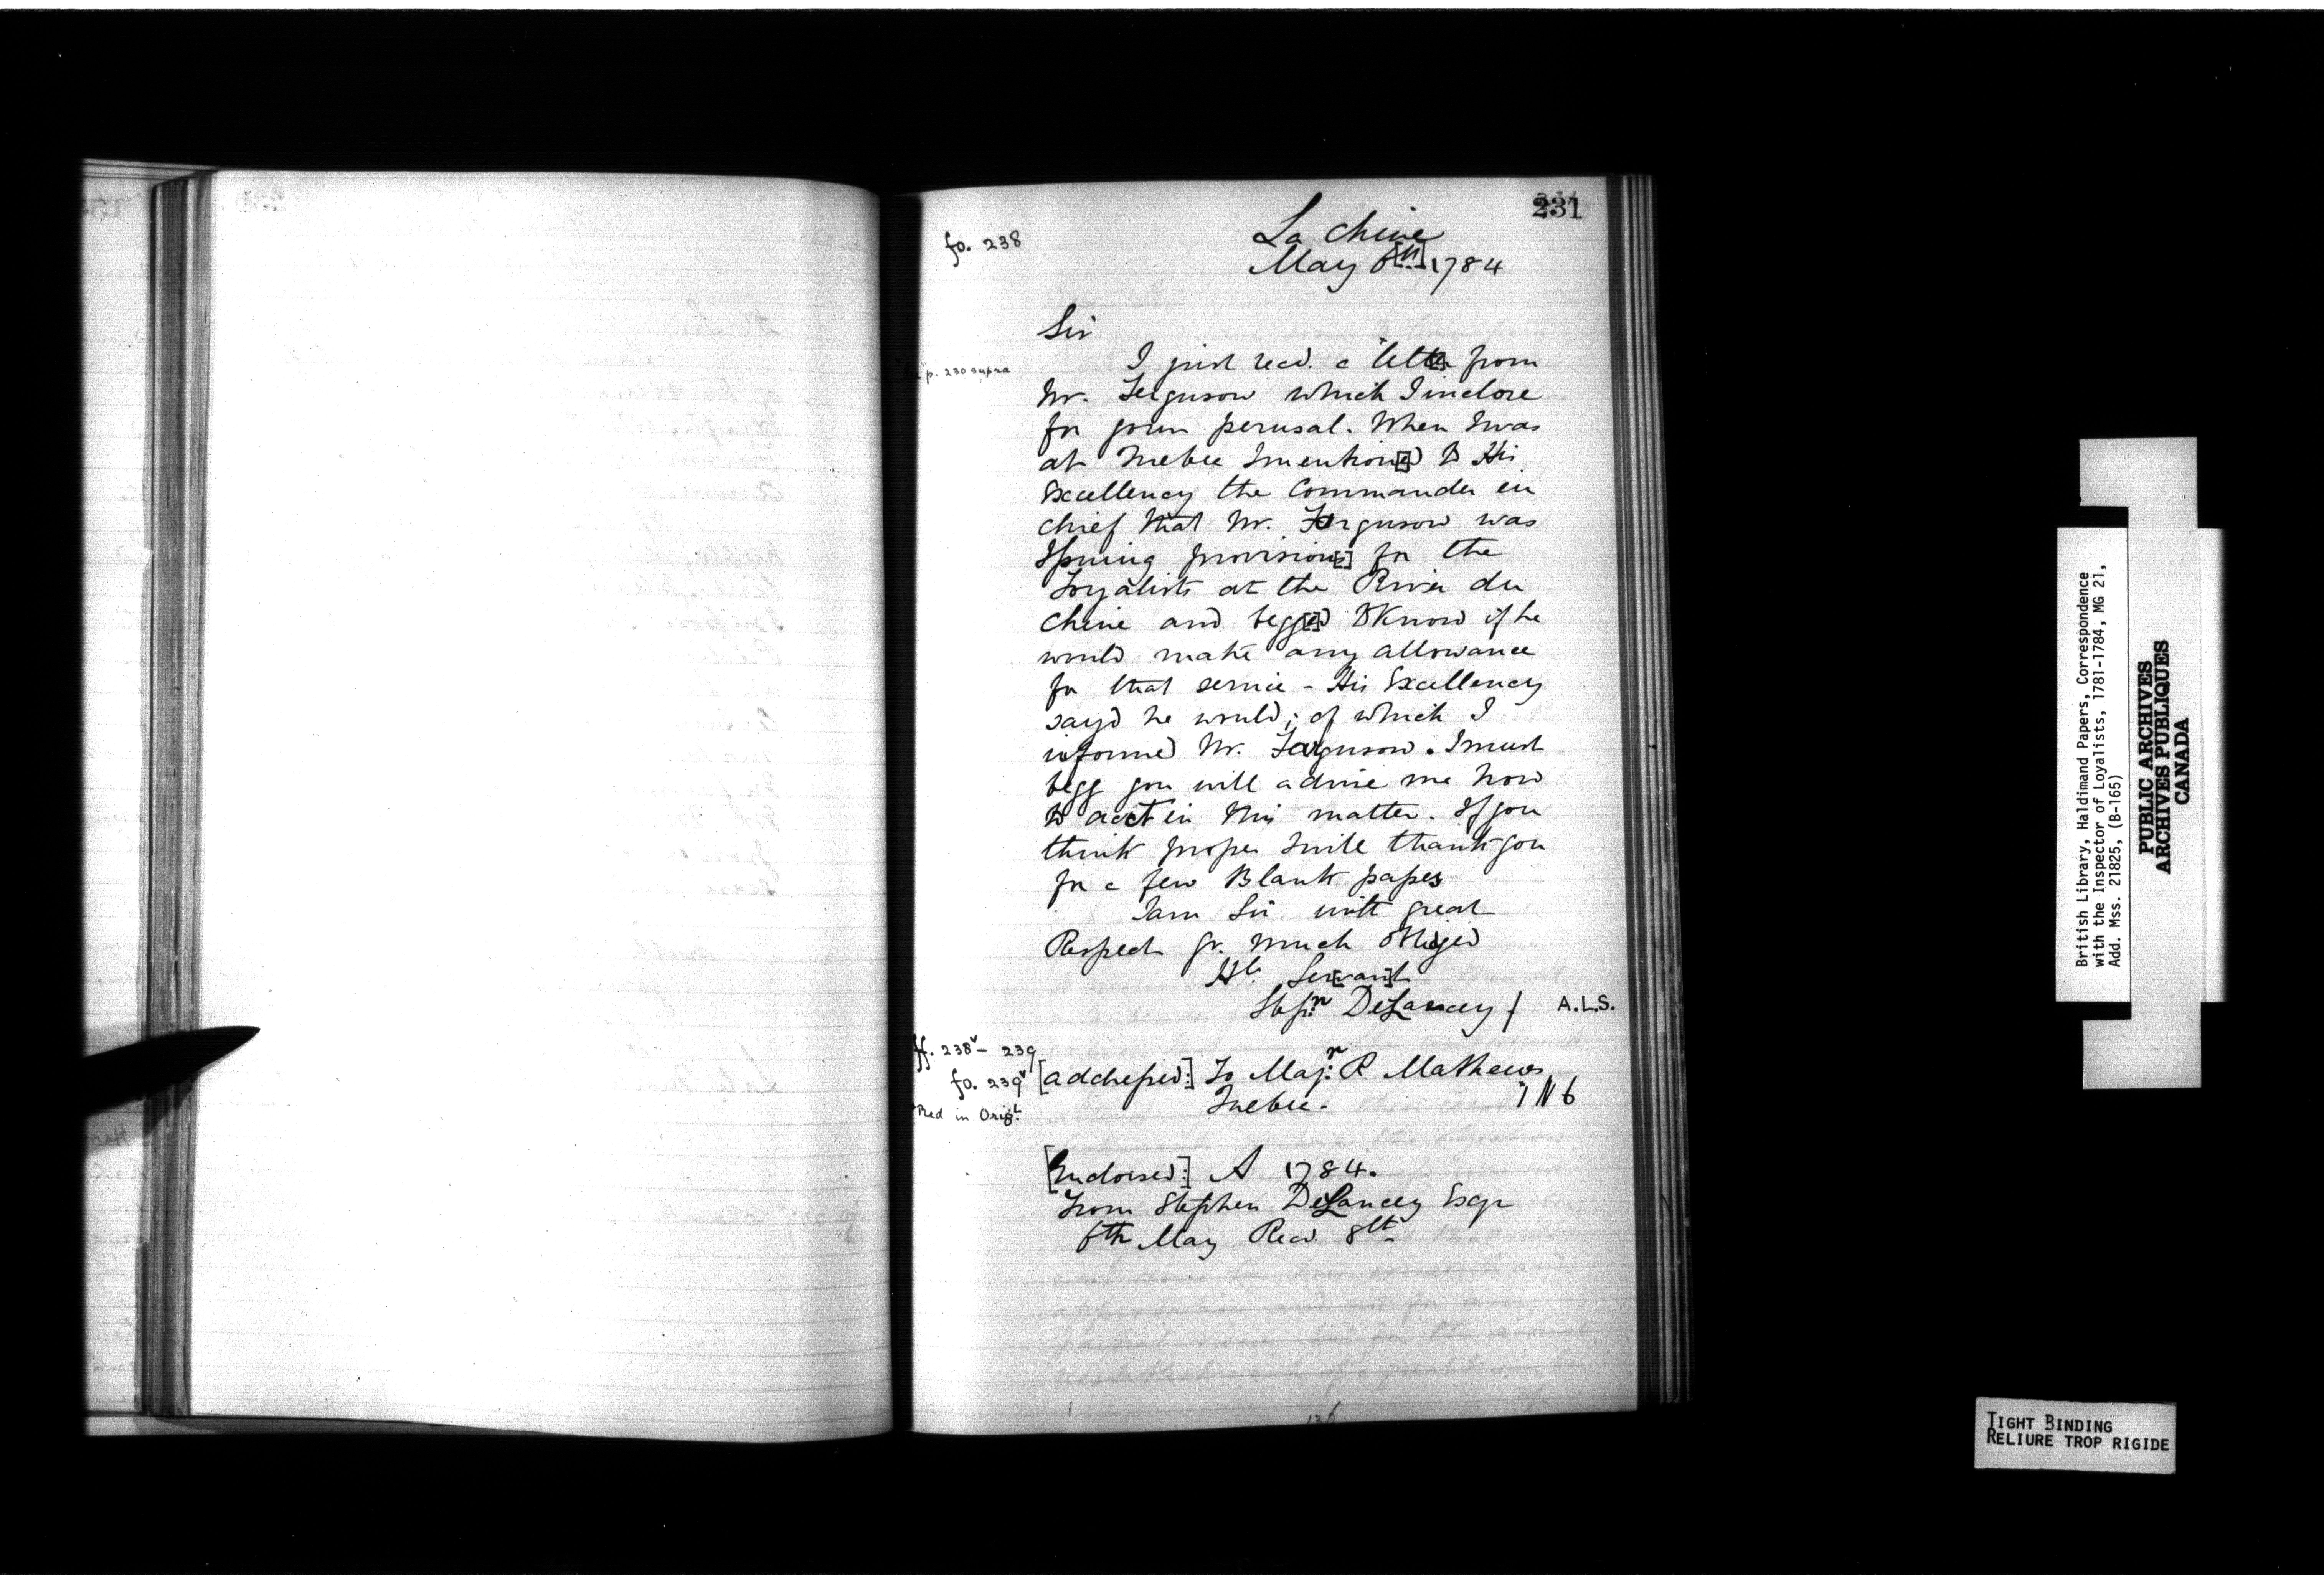 231
fo. 238
La Chine
May 6[th] 1784
Sir
p. 230 supra
I just recd. a lett[e]r from
Mr. Ferguson which I inclose
for your perusal. When I was
at Quebec I mention[e]d to His
Excellency the Commander in
Chief that Mr. Ferguson was
Issuing provision[s] for the
Loyalists at the River du
Chene and begg[e]d to know if he
would make any allowance
for that service - His Excellency
sayd he would; of which I
informed Mr. Ferguson. I must
begg you will advise me how
to act in this matter. If you
think proper I will thank you
for a few Blank papes
I am Sir with great
Respect yr. much Obliged
Hle. Ser[van]t
Stepn. DeLancey } A.L.S.
ff. 238v - 239
fo. 239v [addressed:] To Majr. R. Mathews
Quebec. 1 N 6
*Red in Origl.
[Endorsed:] A 1784.
From Stephen DeLancey Esqr
6th May Recd. 8th
136
British Library, Haldimand Papers, Correspondence
with the Inspector of Loyalists, 1781-1784, MG 21,
Add. Mss. 21825, (B-165)
PUBLIC ARCHIVES
ARCHIVES PUBLIQUES
CANADA
TIGHT BINDING
RELIURE TROP RIGIDE